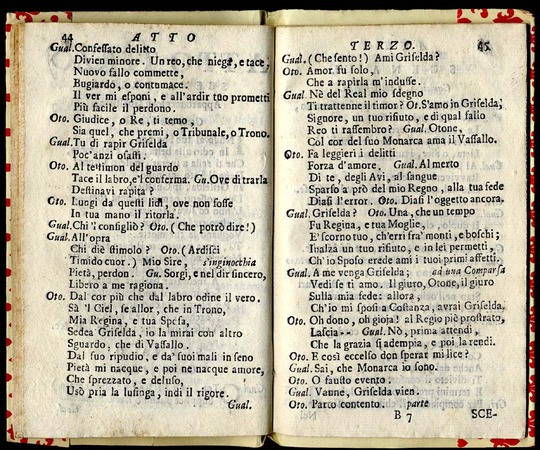 44 ATTO
Gual. Confessato delitto
Divien minore. Un reo, che niega, e tace,
Nuovo fallo commette,
Bugiardo, o contumace.
Il ver mi esponi, e all'ardir tuo prometti
Più facile il perdono.
Oto. Giudice, o Re, ti temo,
Sia quel, che premi, o Tribunale, o Trono.
Gual. Tu di rapir Griselda
Poc'anzi osasti.
Oto. Al testimon del guardo
Tace il labro, e'l conferma. Gu. Ove di trarla
Destinavi rapita?
Oto. Lungi da questi lidi, ove non fosse
In tua mano il ritorla.
Gual. Chi'l consigliò? Oto. (Che potrò dire!)
Gual. All'opra
Chi diè stimolo? Oto. (Ardisci
Timido cuor.) Mio Sire, s'inginocchia
Pietà, perdon. Gu. Sorgi, e nel dir sincero,
Libero a me ragiona.
Oto. Dal cor più che dal labro odine il vero.
Sà 'l Ciel, se allor, che in Trono,
Mia Regina, e tua Sposa,
Sedea Griselda, io la mirai con altro
Sguardo, che di Vassallo.
Dal suo ripudio, e da' suoi mali in seno
Pietà mi nacque, e poi ne nacque amore,
Che sprezzato, e deluso,
Usò pria la lusinga, indi il rigore.
Gual.
TERZO. 45
Gual. (Che sento!) Ami Griselda?
Oto. Amor fu solo,
Che a rapirla m'indusse.
Gual. Nè del Real mio sdegno
Ti trattenne il timor? Ot. S'amo in Griselda,
Signore, un tuo rifiuto, e di qual fallo
Reo ti rassembro? Gual. Otone,
Col cor del suo Monarca ama il Vassallo.
Oto. Fa leggieri i delitti
Forza d'amore. Gual. Al merto
Di te, degli Avi, al sangue
Sparso a prò del mio Regno, alla tua fede
Diasi l'error. Oto. Diasi l'oggetto ancora.
Gual. Griselda? Oto. Una, che un tempo
Fu Regina, e tua Moglie,
E' scorno tuo, ch'erri fra' monti, e boschi;
Inalza un tuo rifiuto, e in lei permetti,
Ch'io Sposo erede ami i tuoi primi affetti.
Gual. A me venga Griselda; ad una Comparsa
Vedi se ti amo. Il giuro, Otone, il giuro
Sulla mia fede: allora,
Ch'io mi sposi a Costanza, avrai Griselda.
Oto. Oh dono, oh gioia! al Regio piè prostrato,
Lascia-- Gual. Nò, prima attendi,
Che la grazia si adempia, e poi la rendi.
Oto. E così eccelso don sperar mi lice?
Gual. Sai, che Monarca io sono.
Oto. O fausto evento.
Gual. Vanne, Griselda vien.
Oto. Parto contento. parte
B 7 SCE-